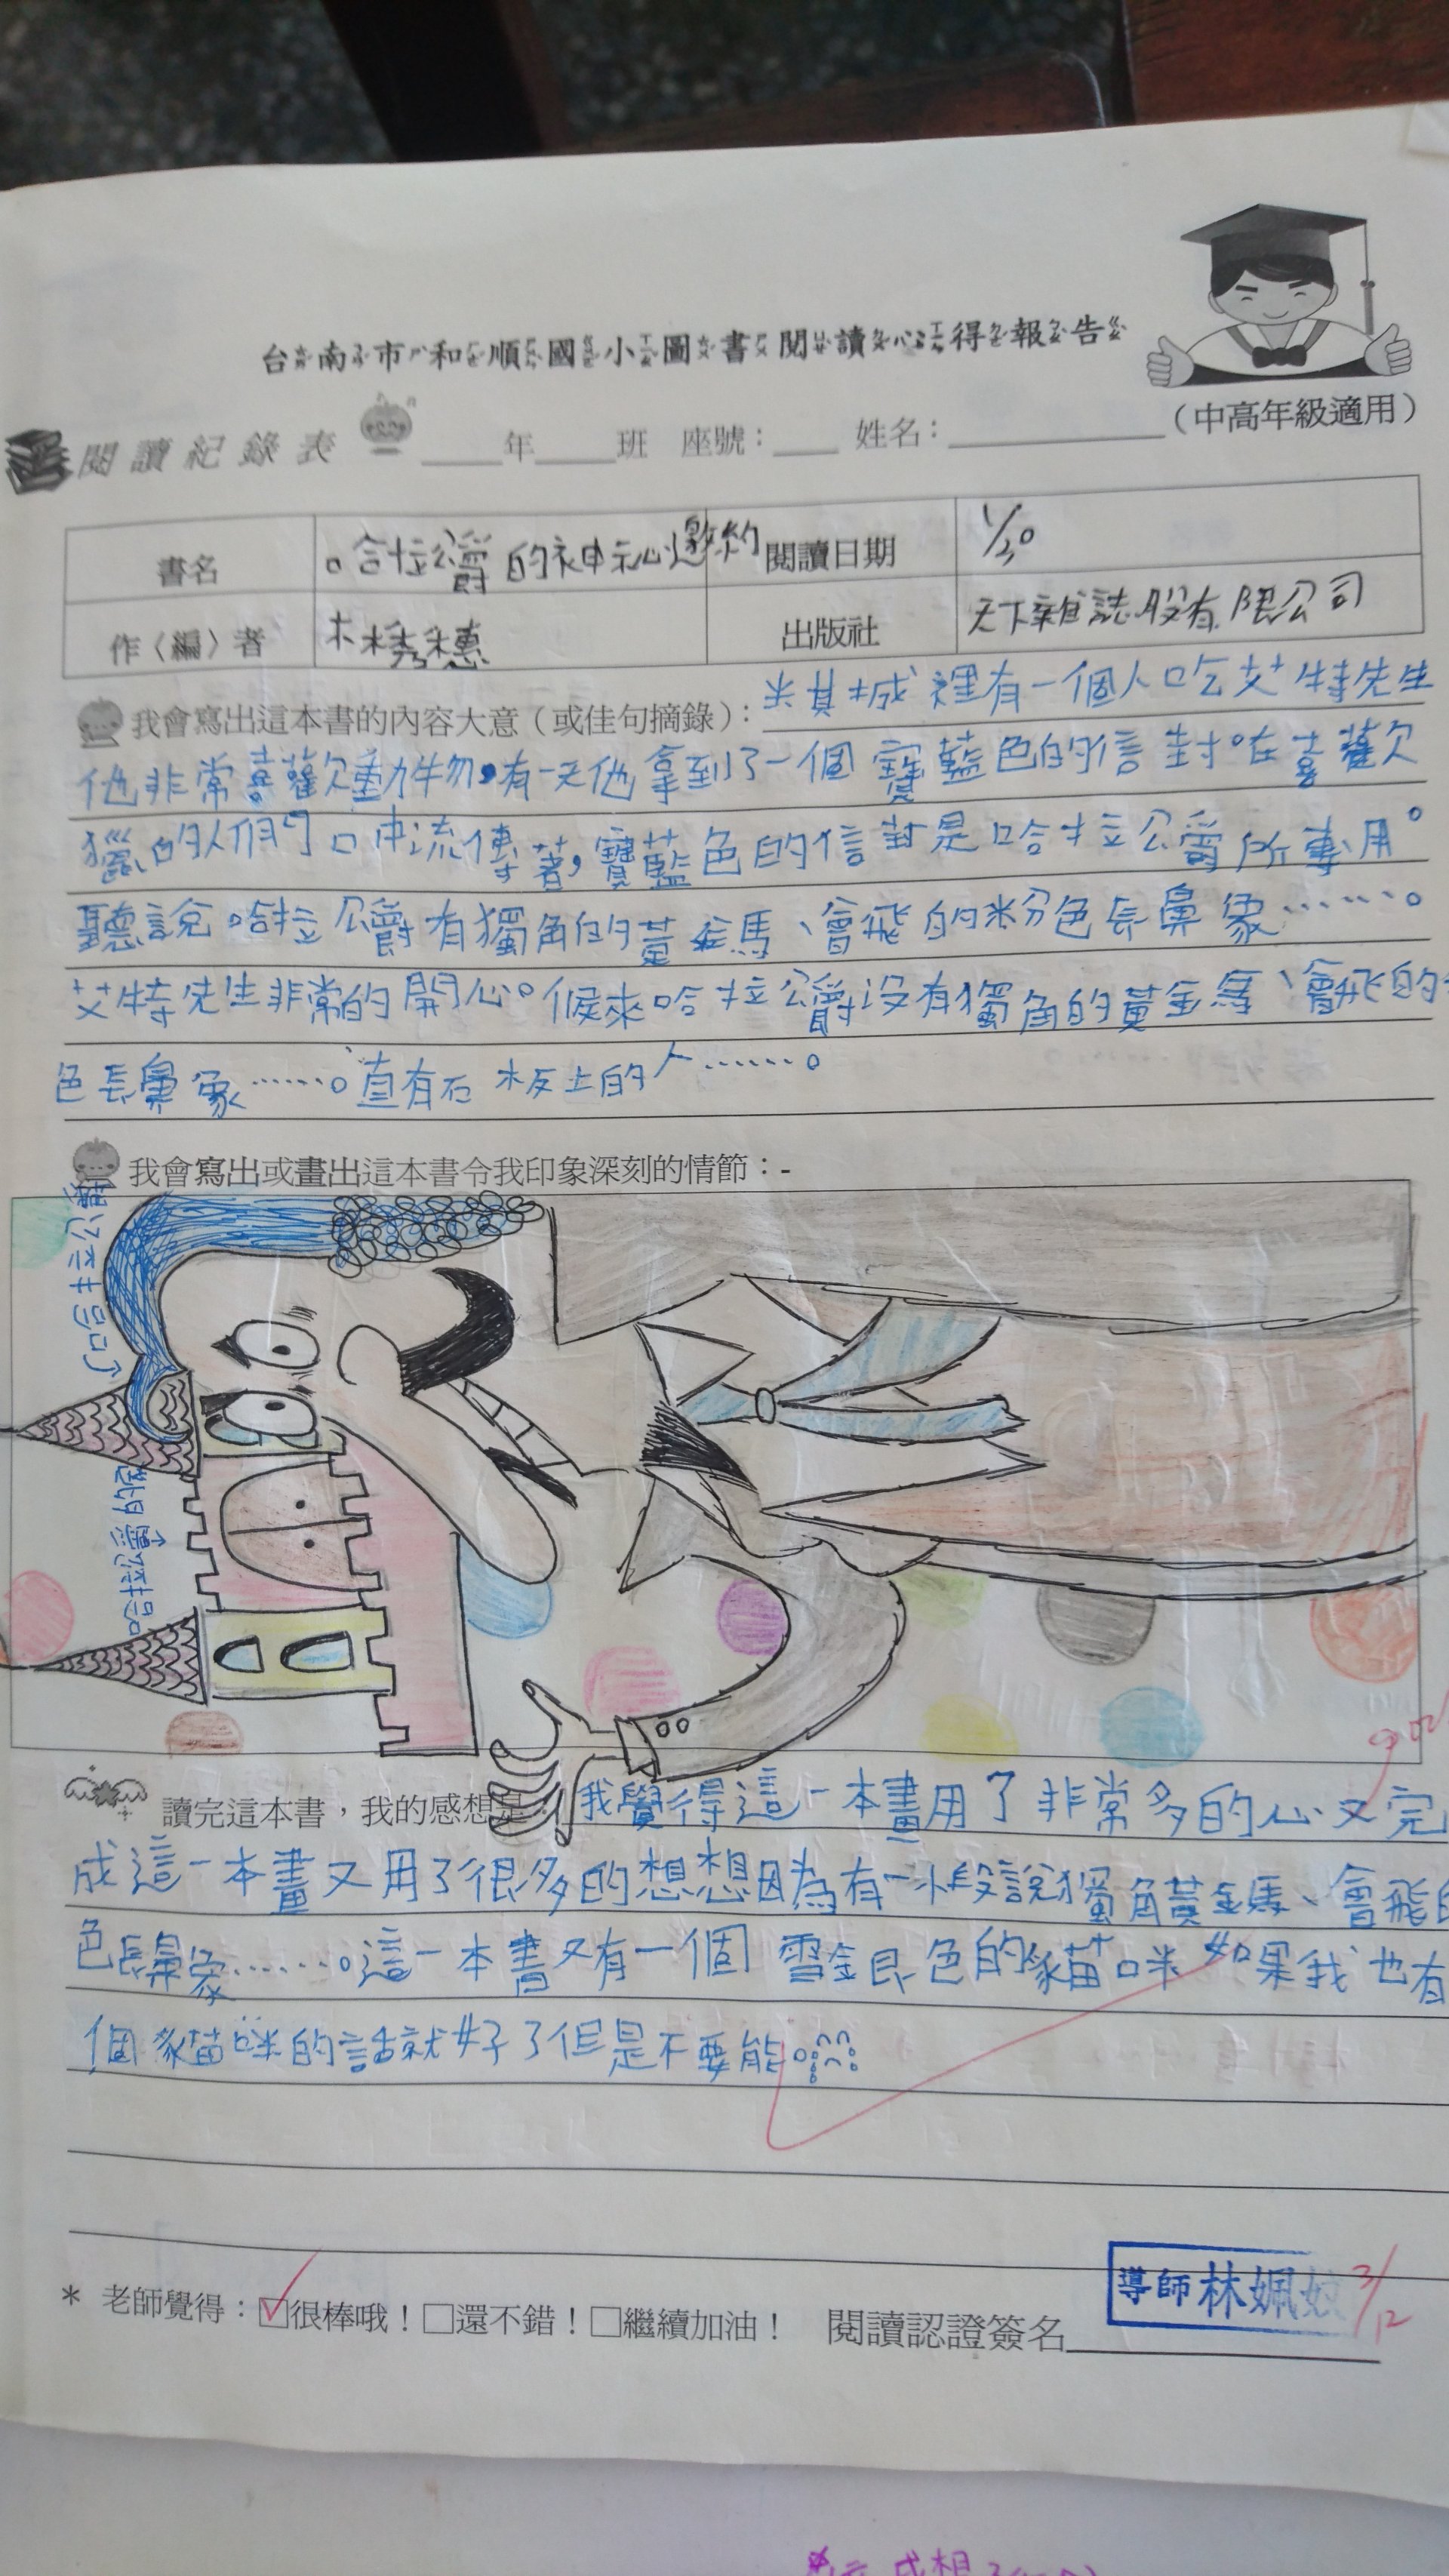 台南市和順國小圖書閱讀心得報告
(中高年級適用)
閱讀紀錄表 ____年____班 座號：____ 姓名：________
書名 哈拉公爵的神祕邀約 閱讀日期 1/30
作〈編〉者 林秀穗 出版社 天下雜誌股有限公司
我會寫出這本書的內容大意（或佳句摘錄）：米其城裡有一個人叱艾特先生
他非常喜歡動物,有一天他拿到了一個寶藍色的信封。在喜歡
獵的人們口中流傳著,寶藍色的信封是哈拉公爵所專用。
聽說哈拉公爵有獨角的黃金馬、會飛的粉色長鼻象……。
艾特先生非常的開心。候來哈拉公爵沒有獨角的黃金馬、會飛的
色長鼻象……。直有石板上的人……。
我會寫出或畫出這本書令我印象深刻的情節：-
讀完這本書，我的感想是：我覺得這一本畫用了非常多的心又完
成這一本畫又用了很多的想想因為有一小段說獨角黃金馬、會飛的
色長鼻象……。這一本書又有一個雪銀色的貓咪如果我也有
個貓咪的話就好了但是不要能。
good
* 老師覺得：☑很棒哦！□還不錯！□繼續加油！ 閱讀認證簽名
導師林姵
3/12